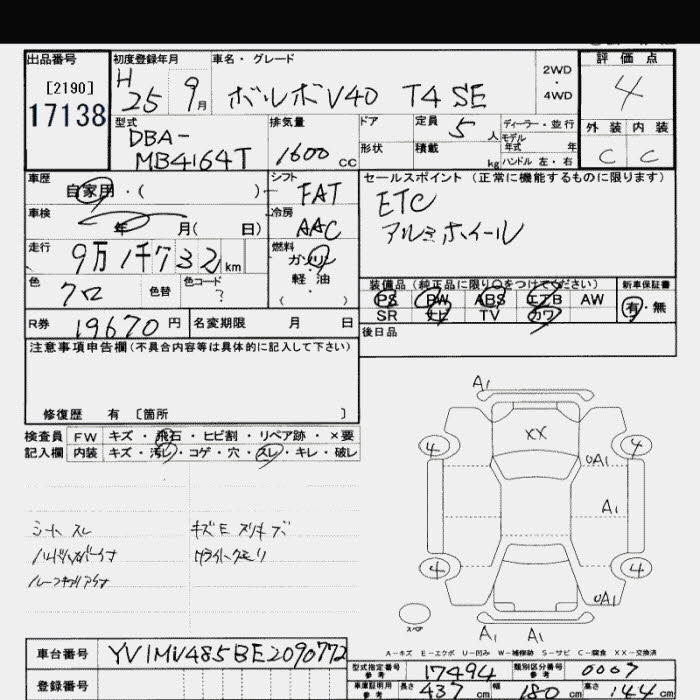 出品番号 初度登録年月 車名・グレード 評価点
[2190] H 25 9月 ボルボV40 T4 SE 2WD・4WD 4
17138
型式 排気量 ドア 定員 5人 ディーラー・並行 外装 内装
DBA- モデル年式 年
MB4164T 1600cc 形状 積載 kg ハンドル 左・右 C C
車歴 シフト セールスポイント(正常に機能するものに限ります)
自家用・( ) FAT ETC
車検 冷房 アルミホイール
年 月( 日) AAC
走行 燃料
9万1千732km ガソリン
色 色替 色コード 軽・油 装備品(純正品に限り○をつけてください) 新車保証書
クロ ? ( ) PS PW ABS エアB AW 有・無
SR ナビ TV カワ
R券 19670円 名変期限 月 日 後日品
注意事項申告欄(不具合内容等は具体的に記入して下さい)
修復歴 有 〔箇所 〕
検査員 FW キズ・飛石・ヒビ割・リペア跡・×要
記入欄 内装 キズ・汚レ・コゲ・穴・スレ・キレ・破レ
A1
XX
4 4
UA1
A1
シート スレ
4 4
UA1
スペア
A1 A1
A-キズ E-エクボ U-凹み W-補修跡 S-サビ C-腐食 XX-交換済
車台番号 YV1MV485BE2090772
型式指定番号 参考 17494 類別区分番号 参考 0007
登録番号 車庫証明用 参考 長さ 437cm 幅 180cm 高さ 144cm